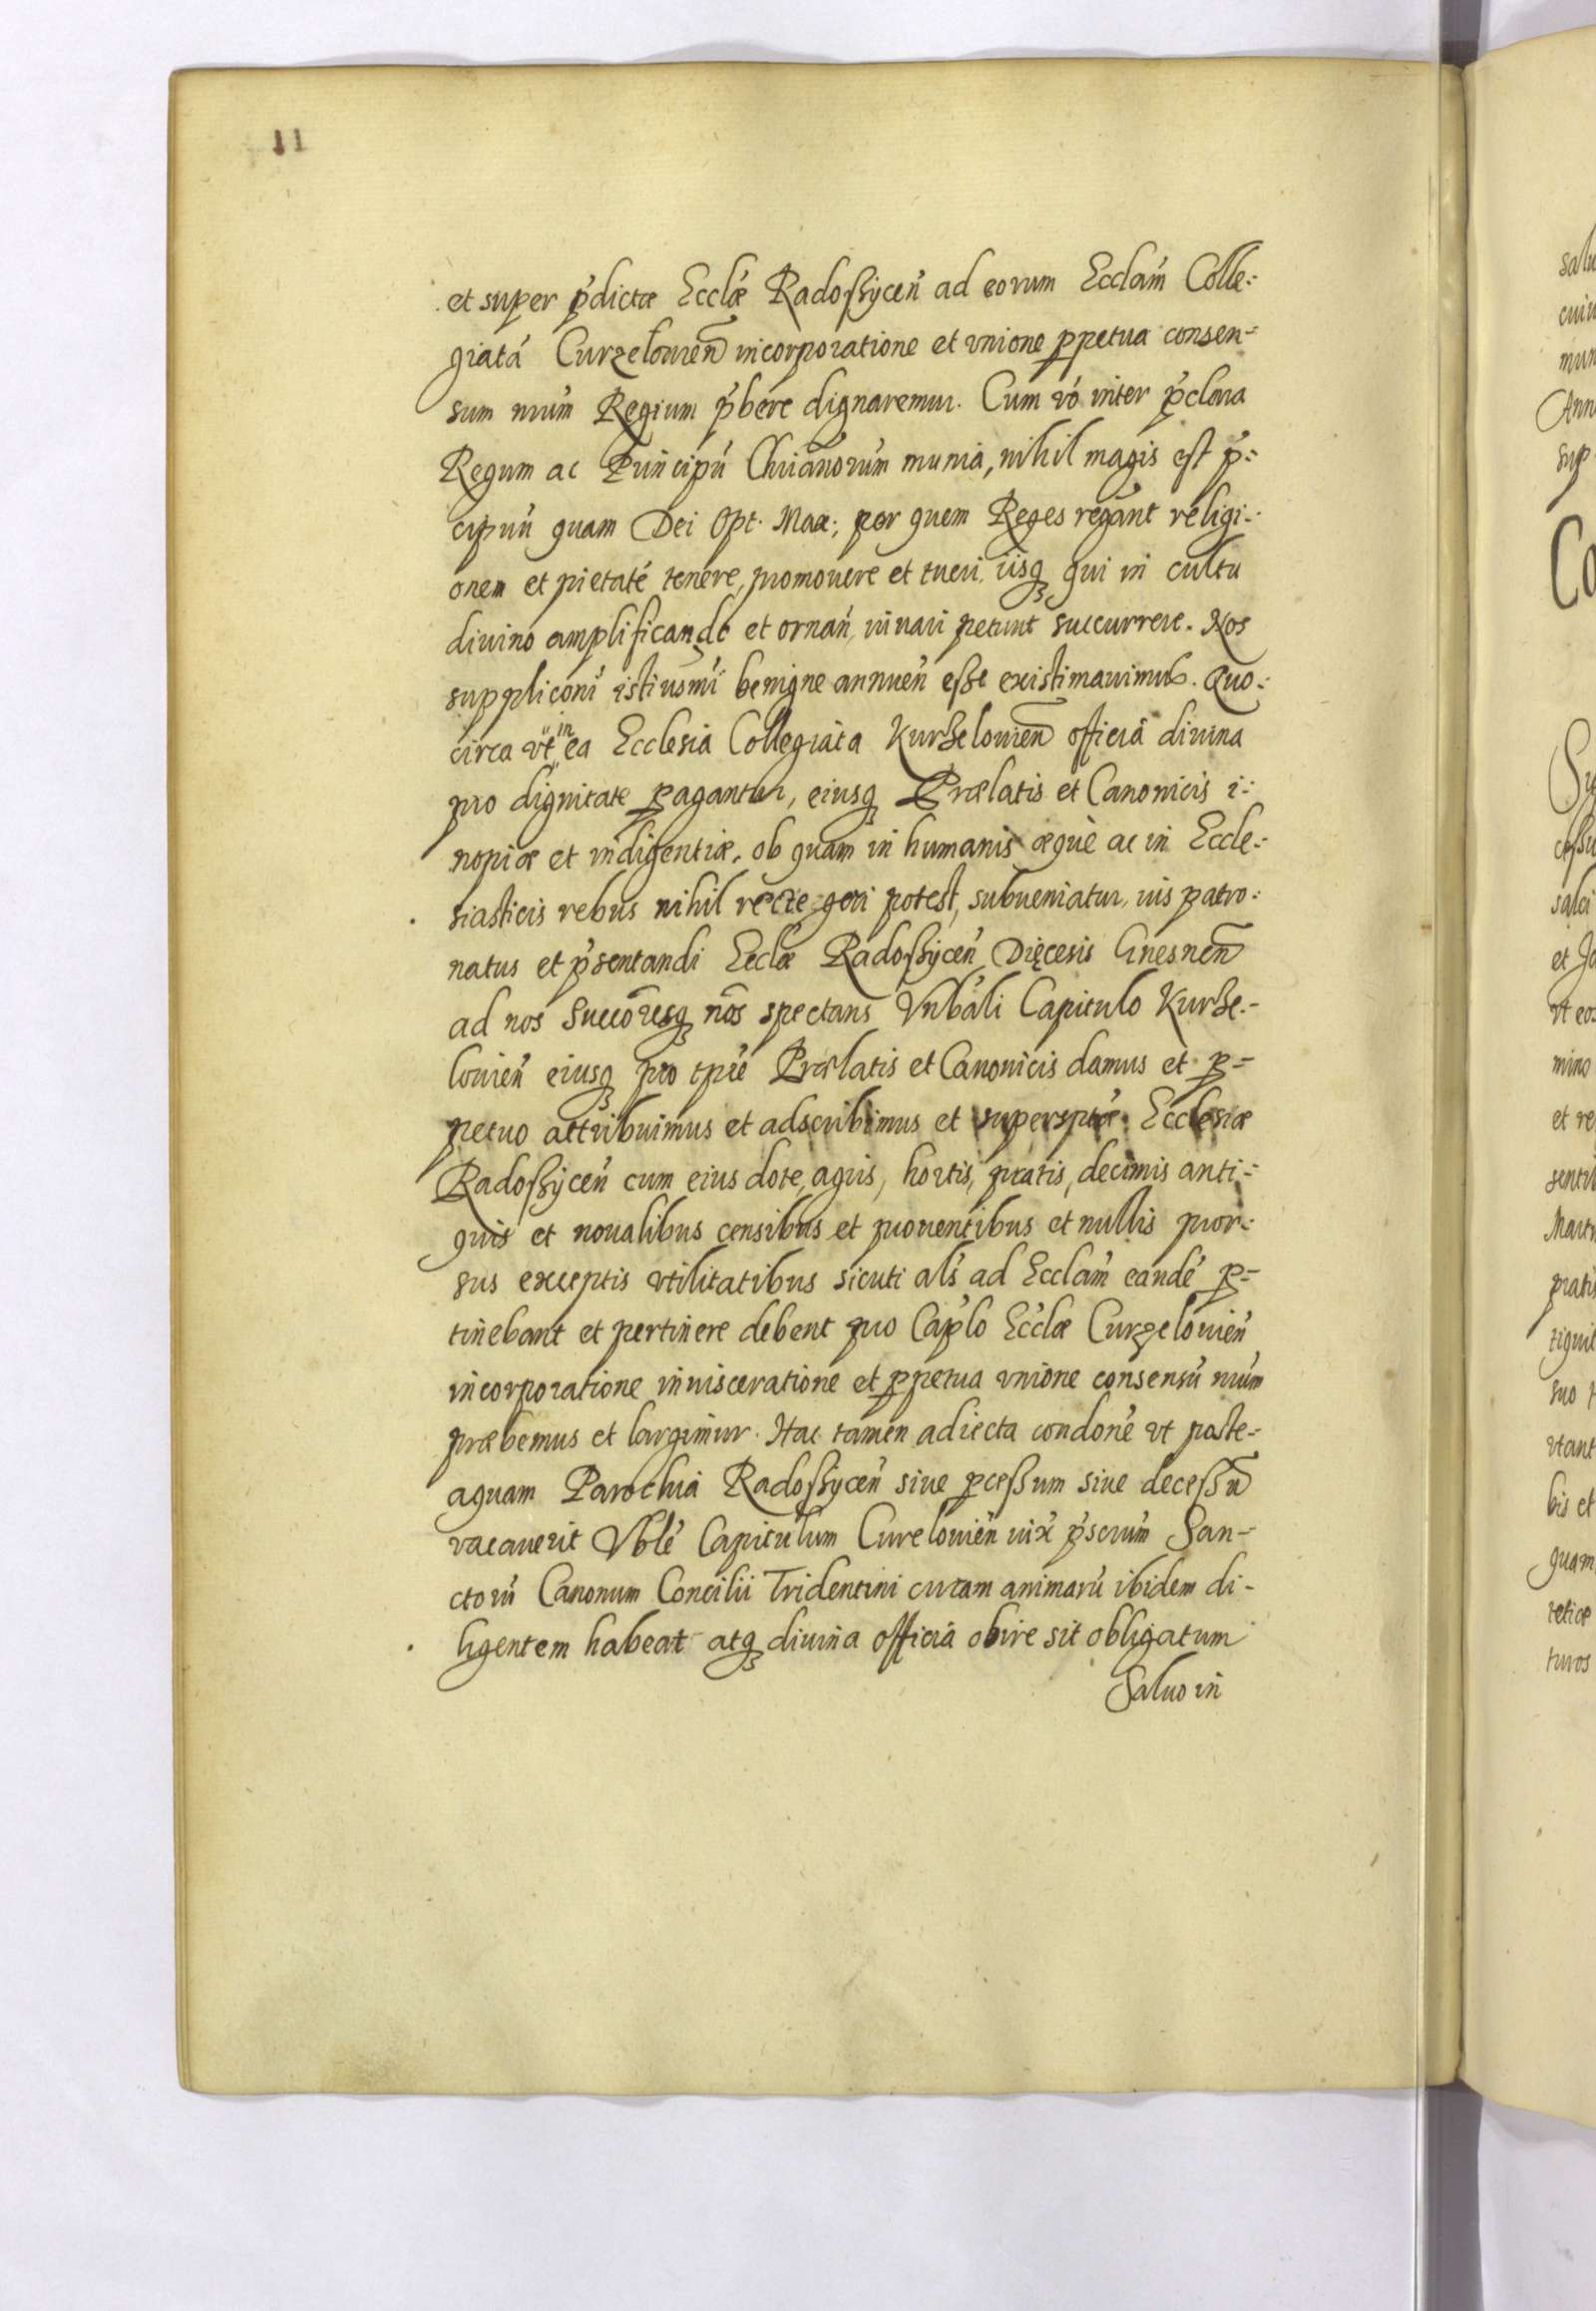 11
et super p̃dictæ Ecclæ̃ Radoſzÿceñ ad eorum Ecclam̃ Colle⸗
giatá Curzelouieñ incorporatione et vnione ꝑpetua consen⸗
sum nrum̃ Regium p̃bere dignaremur. Cum vó inter p̃clara
Regum ac Principũ Chrianorum̃ munia, nihil magis est p̃⸗
cipuũ quam Dei Opt. Max; per quem Reges regant religi⸗
onem et pietaté tenere, promouere et tueri, iisq̃ qui in cultu
diuino amplificando et ornañ, iuuari petunt succurrere. Nos
suppliconi istiusmi benigne annueñ eſse existimauimus. Quo⸗
circa vt in ea Ecclesia Collegiata Kurzelouieñ officia diuina
pro dignitate ꝑagantur, eiusq̃ Prælatis et Canonicis i⸗
nopiæ et indigentiæ, ob quam in humanis æquè ac in Eccle⸗
siasticis rebus nihil recte geri potest, subueniatur, ius patro⸗
natus et p̃sentandi Ecclæ Radoſzÿceñ Dięcesis Gnesneñ
ad nos Succoresq̃ nõs spectans Vnbali Capitulo Kurze⸗
louieñ eiusq̃ pro tpré Prælatis et Canonicis damus et ꝑ⸗
petuo attribuimus et adscribimus et superspta̋ Ecclesiæ
Radoſzÿceñ cum eius dote, agris, hortis, pratis, decimis anti⸗
quis et noualibus censibus et prouentibus et nullis pror⸗
sus exceptis vtilitatibus sicuti als̃ ad Ecclam̃ eandé ꝑ⸗
tinebant et pertinere debent pro Caplo Ecclæ Curzelouieñ
incorporatione inuisceratione et ꝑpetua vnione consensũ nrum̃
præbemus et largimur. Hac tamen adiecta condone vt poste⸗
aquam Parochia Radoſzÿceñ siue ꝑceſsum siue deceſsũ
vacauerit Vble Capitulum Curelouieñ iux̃ p̃scrum̃ San⸗
ctorũ Canonum Concilii Tridentini curam animarũ ibidem di⸗
ligentem habeat atq̃ diuina officia obire sit obligatum
Saluo in